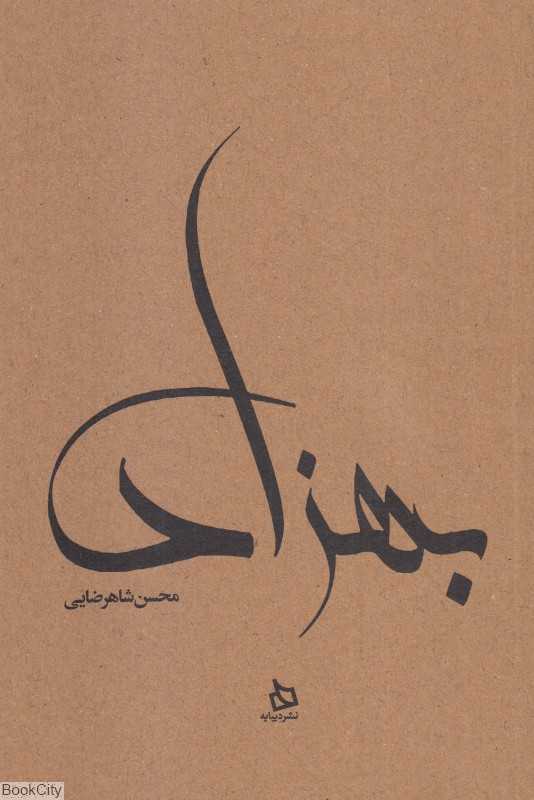 بهزاد
محسن شاهرضایی
نشر دیبایه
BookCity